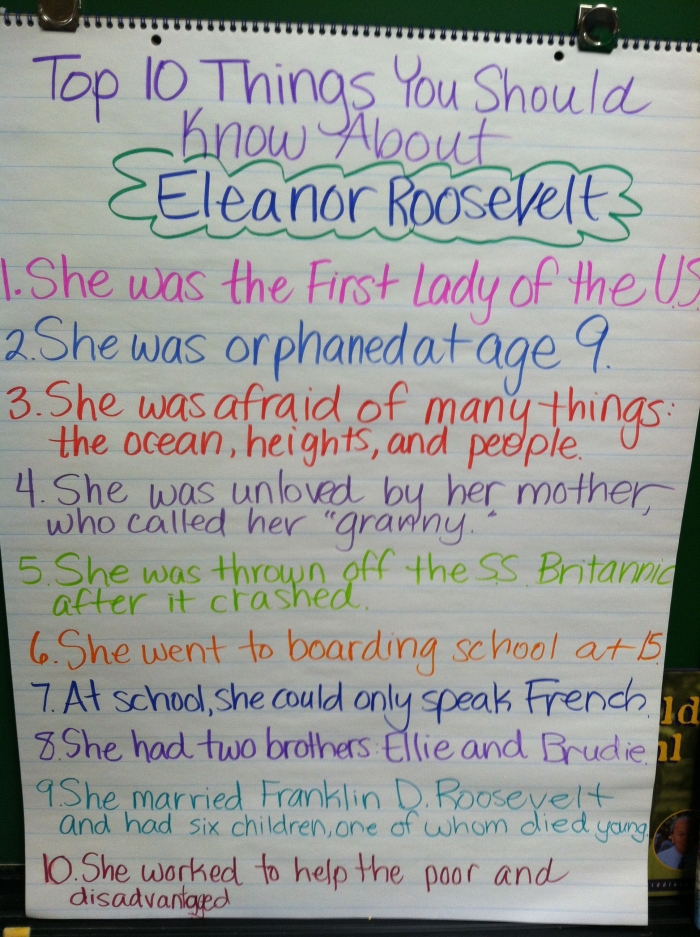 Top 10 Things You Should
Know About
Eleanor Roosevelt
1. She was the First Lady of the US
2. She was orphaned at age 9.
3. She was afraid of many things:
the ocean, heights, and people.
4. She was unloved by her mother,
who called her "granny."
5. She was thrown off the SS Britannic
after it crashed.
6. She went to boarding school at 15
7. At school, she could only speak French.
8. She had two brothers: Ellie and Brudie
9. She married Franklin D. Roosevelt
and had six children, one of whom died young.
10. She worked to help the poor and
disadvantaged
ld
al